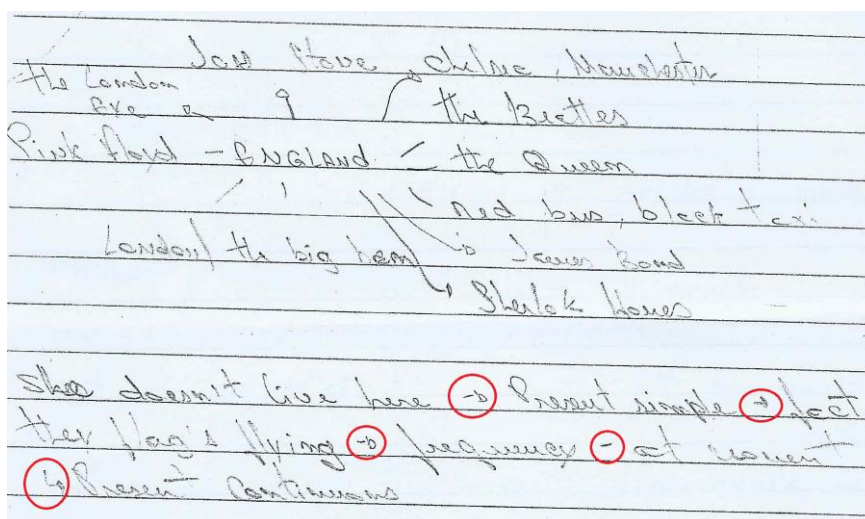 Joss Stone Chelsea, Manchester
the London
eye the Beatles
Pink floyd - ENGLAND - the Queen
red bus, black taxi
London/ the big ben James Bond
Sherlok Homes
She doesn't live here → Present simple → fact
Her flag's flying → frequency - at moment
↳ Present Continuous